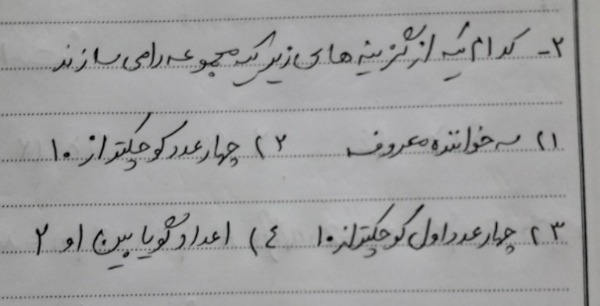 ۲- کدام یک از گزینه های زیر یک مجموعه را می سازند
۱) سه خواننده معروف ۲) چهار عدد کوچکتر از ۱۰
۳) چهار عدد اول کوچکتر از ۱۰ ۴) اعداد گویا بین ۱ و ۲